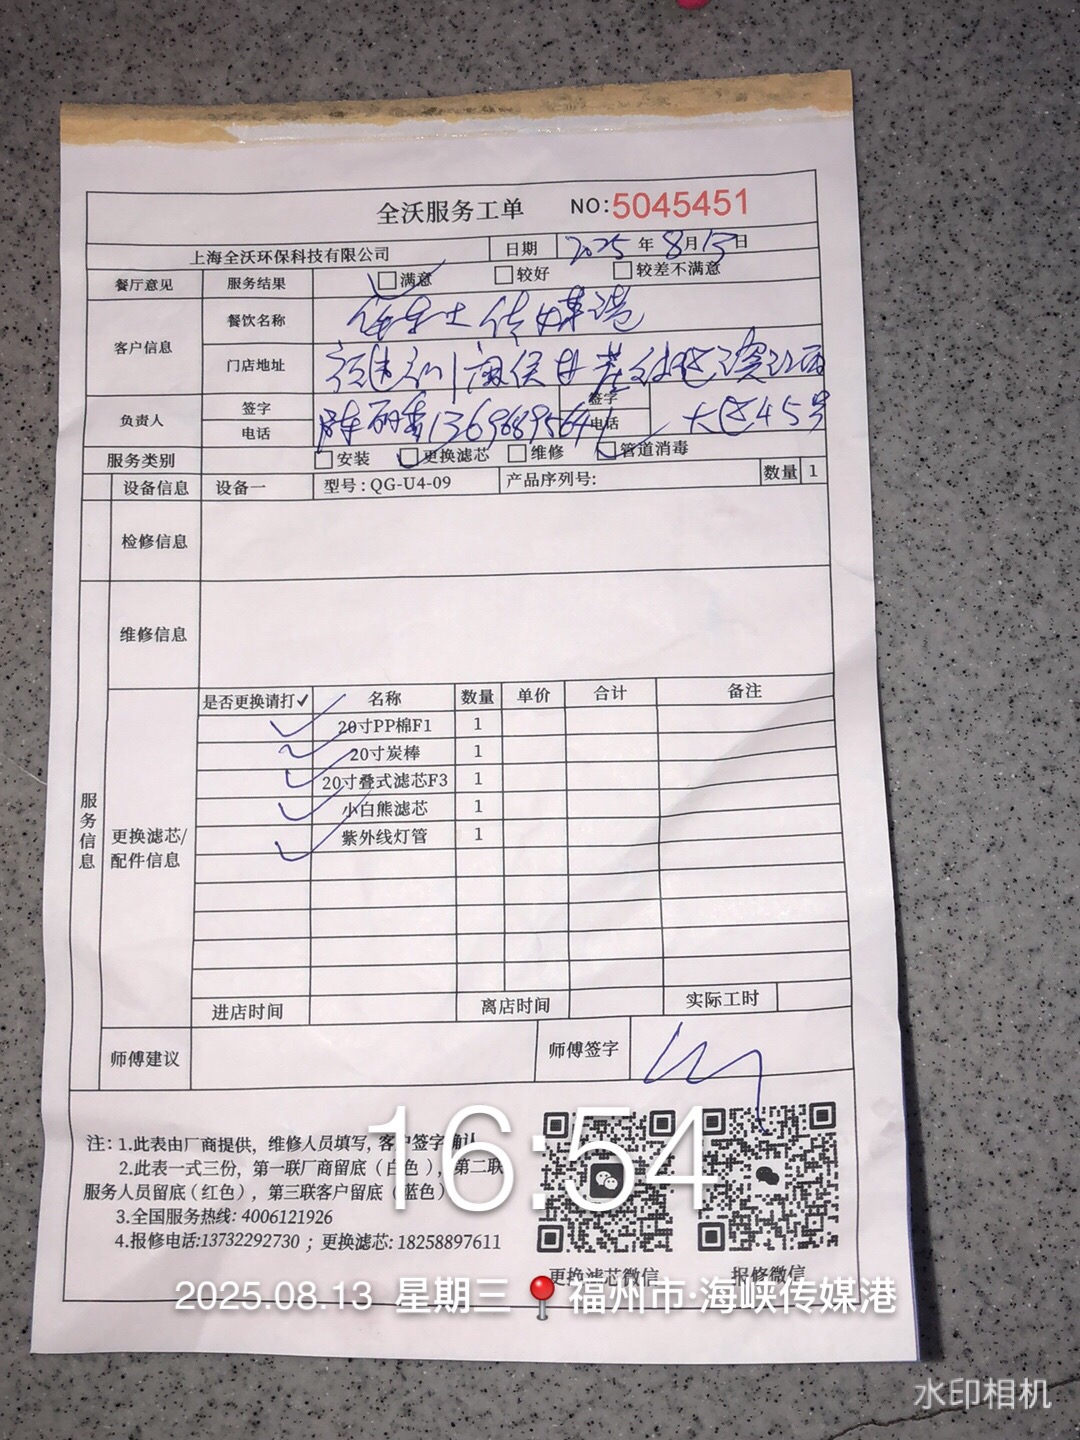 全沃服务工单 NO:5045451
上海全沃环保科技有限公司 日期 2025 年 8 月 13 日
餐厅意见 服务结果 满意 较好 较差不满意
客户信息 餐饮名称 传媒港
门店地址 福建福州闽侯
大道45号
负责人 签字 签字
电话 电话
服务类别 安装 更换滤芯 维修 管道消毒
设备信息 设备一 型号:QG-U4-09 产品序列号: 数量 1
检修信息
维修信息
服务信息
更换滤芯/
配件信息
是否更换请打✓ 名称 数量 单价 合计 备注
✓ 20寸PP棉F1 1
✓ 20寸炭棒 1
✓ 20寸叠式滤芯F3 1
✓ 小白熊滤芯 1
✓ 紫外线灯管 1
进店时间 离店时间 实际工时
师傅建议 师傅签字
注: 1.此表由厂商提供, 维修人员填写, 客户签字确认
2.此表一式三份, 第一联厂商留底(白色), 第二联
服务人员留底(红色), 第三联客户留底(蓝色)
3.全国服务热线: 4006121926
4.报修电话:13732292730 ; 更换滤芯: 18258897611
更换滤芯微信 报修微信
16:54
2025.08.13 星期三 福州市·海峡传媒港
水印相机